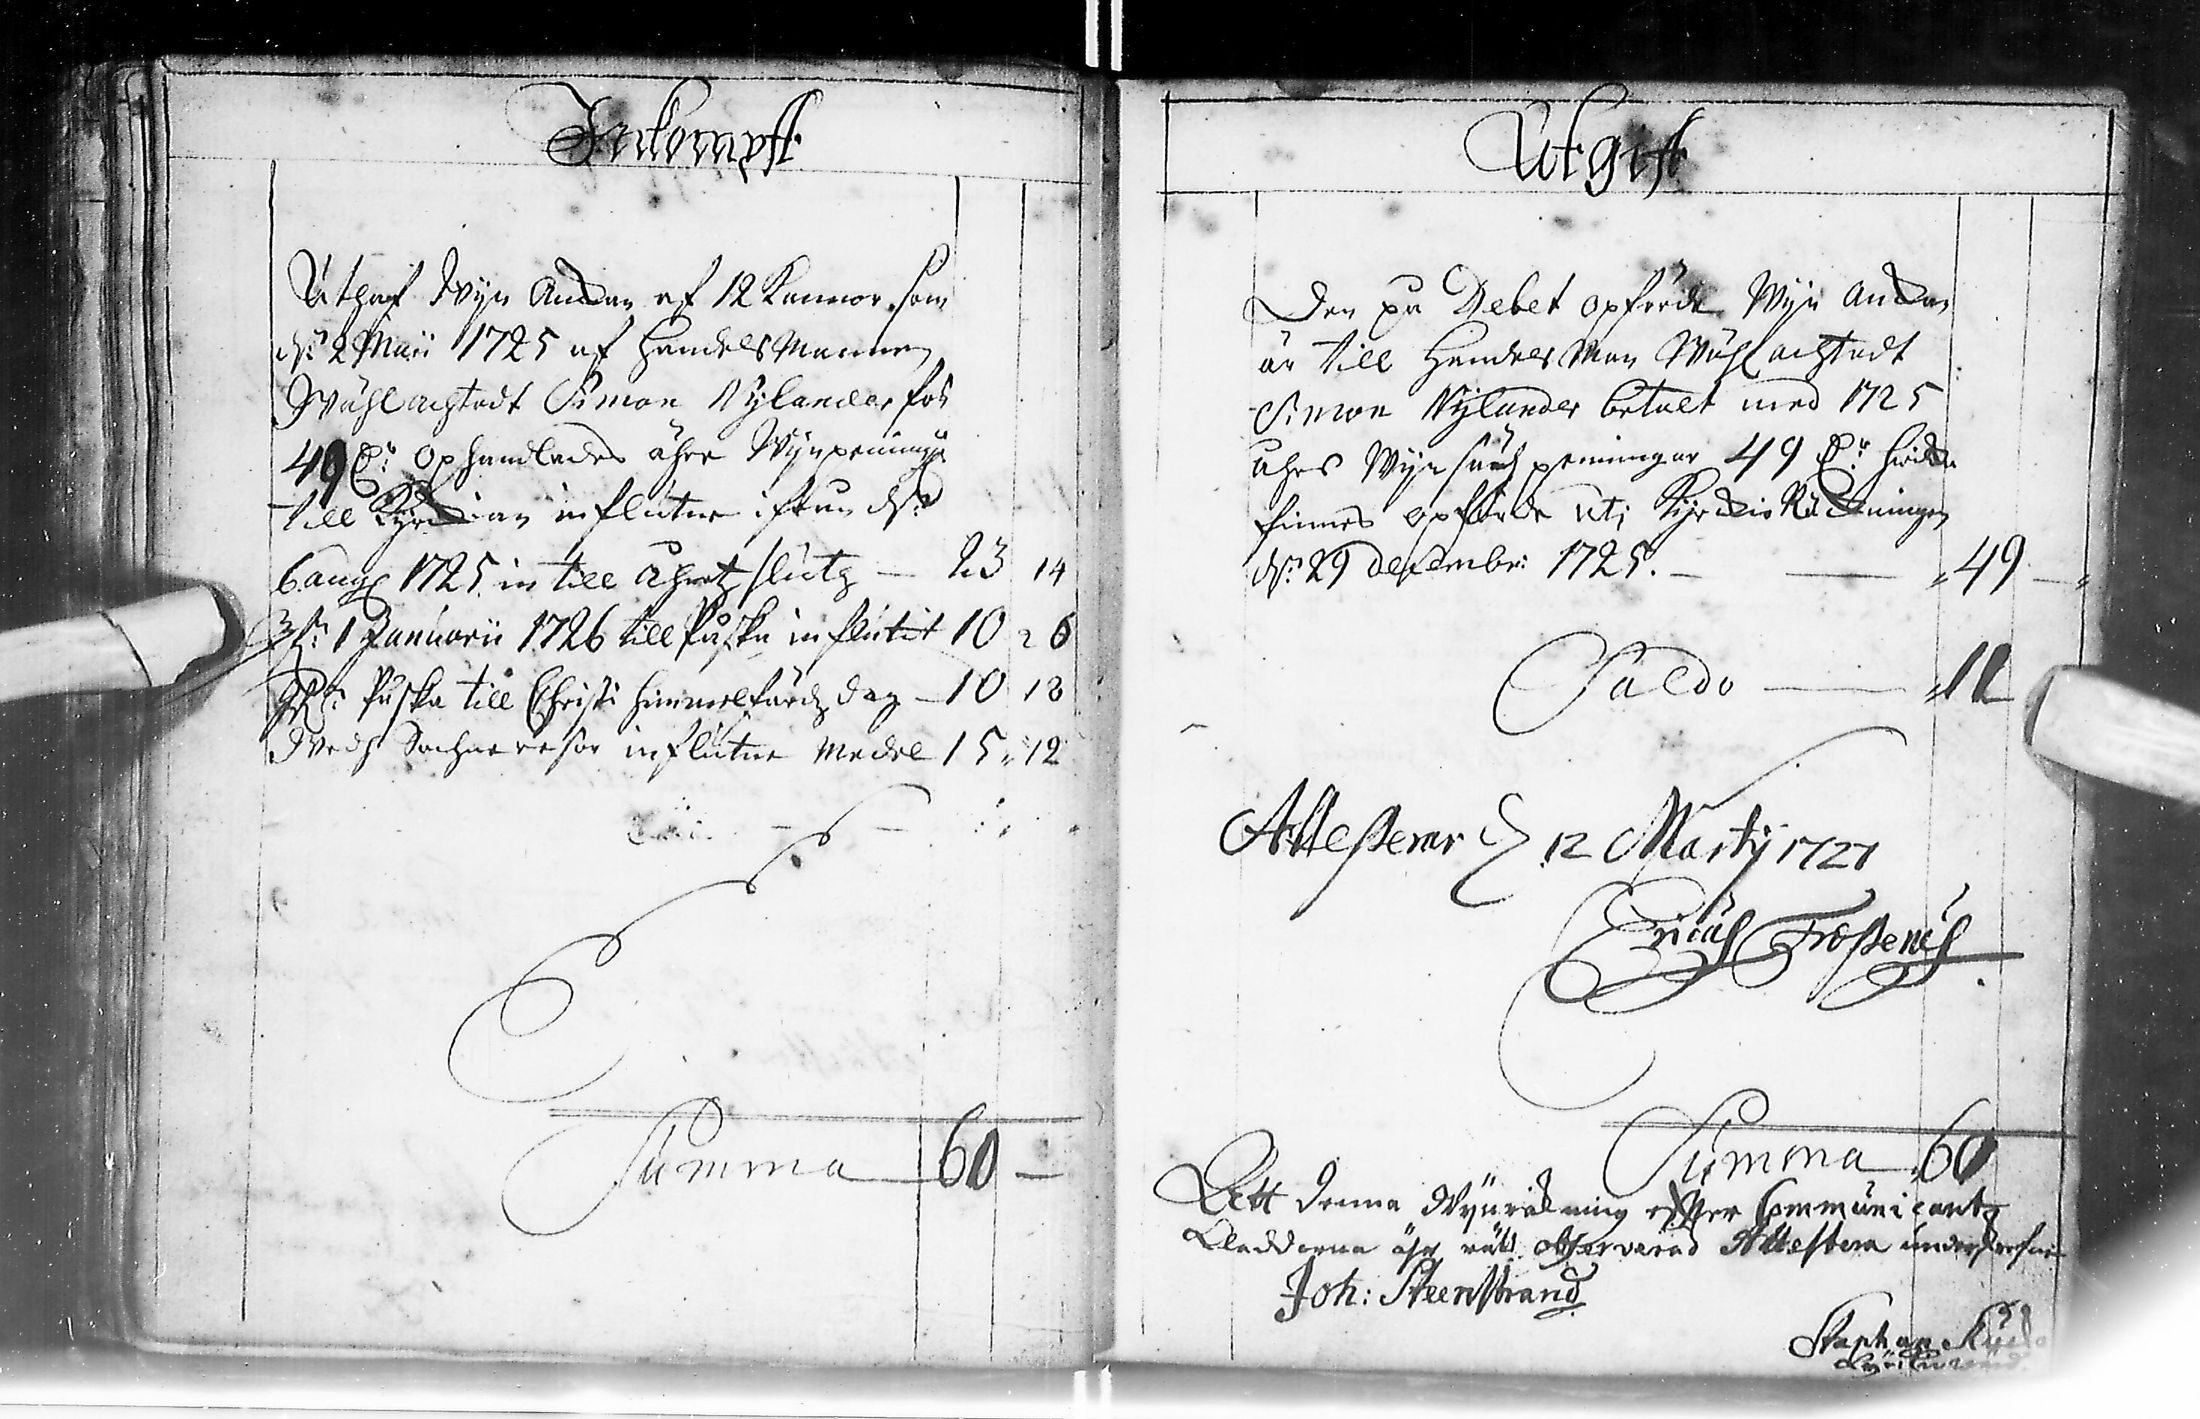 Inkompst
Uthaf Wijn Anckar af 12 Kannor som
d: 2 Maij 1725 af Handels Mannen
Wählachtadt Simon Nylander för
49 D:r ophandlades ähre Wijnpeningar
till Kyrckian influtne ifrån d:
6 aug 1725 in till åhretz slutz — 23 14
Fr: 1 Januarii 1726 till Påska influtit 10 26
Fr: Påska till Christi himmelfärdz dag — 10 18
Wedh Sochne resor influtne medel 15 12
Summa 60 —
Utgift
Den på Debet opförde Wijn anckar
är till Handels Man Wählachtadt
Simon Nylander betalt med 1725
åhrs Wijn peningar 49 D:r hwilcka
finnes opförde uti Kyrckio Räckningen
d: 29 Decembr: 1725. — 49 —
Saldo — 11
Attesterar d 12 Martij 1727
Ericus Frosenius
Summa 60
Att denna Wijnräkning efter Communicantz
Län är rätt observerad Attestera underskrefne
Joh: Steenstrand
Staphan